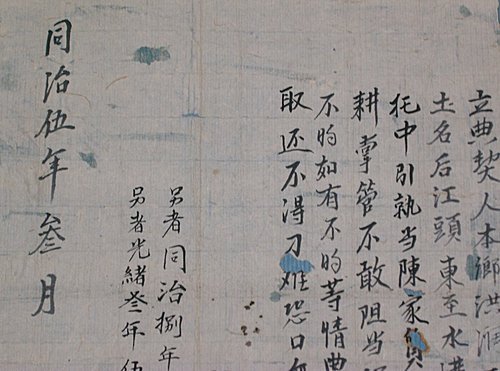 立典契人本鄉洪
土名后江頭東至水
托中引執当陳家
耕掌管不敢阻当
不明如有不明等情典
取还不得刁难恐口
另者同治捌年
另者光緒叁年伍
同治伍年叁月